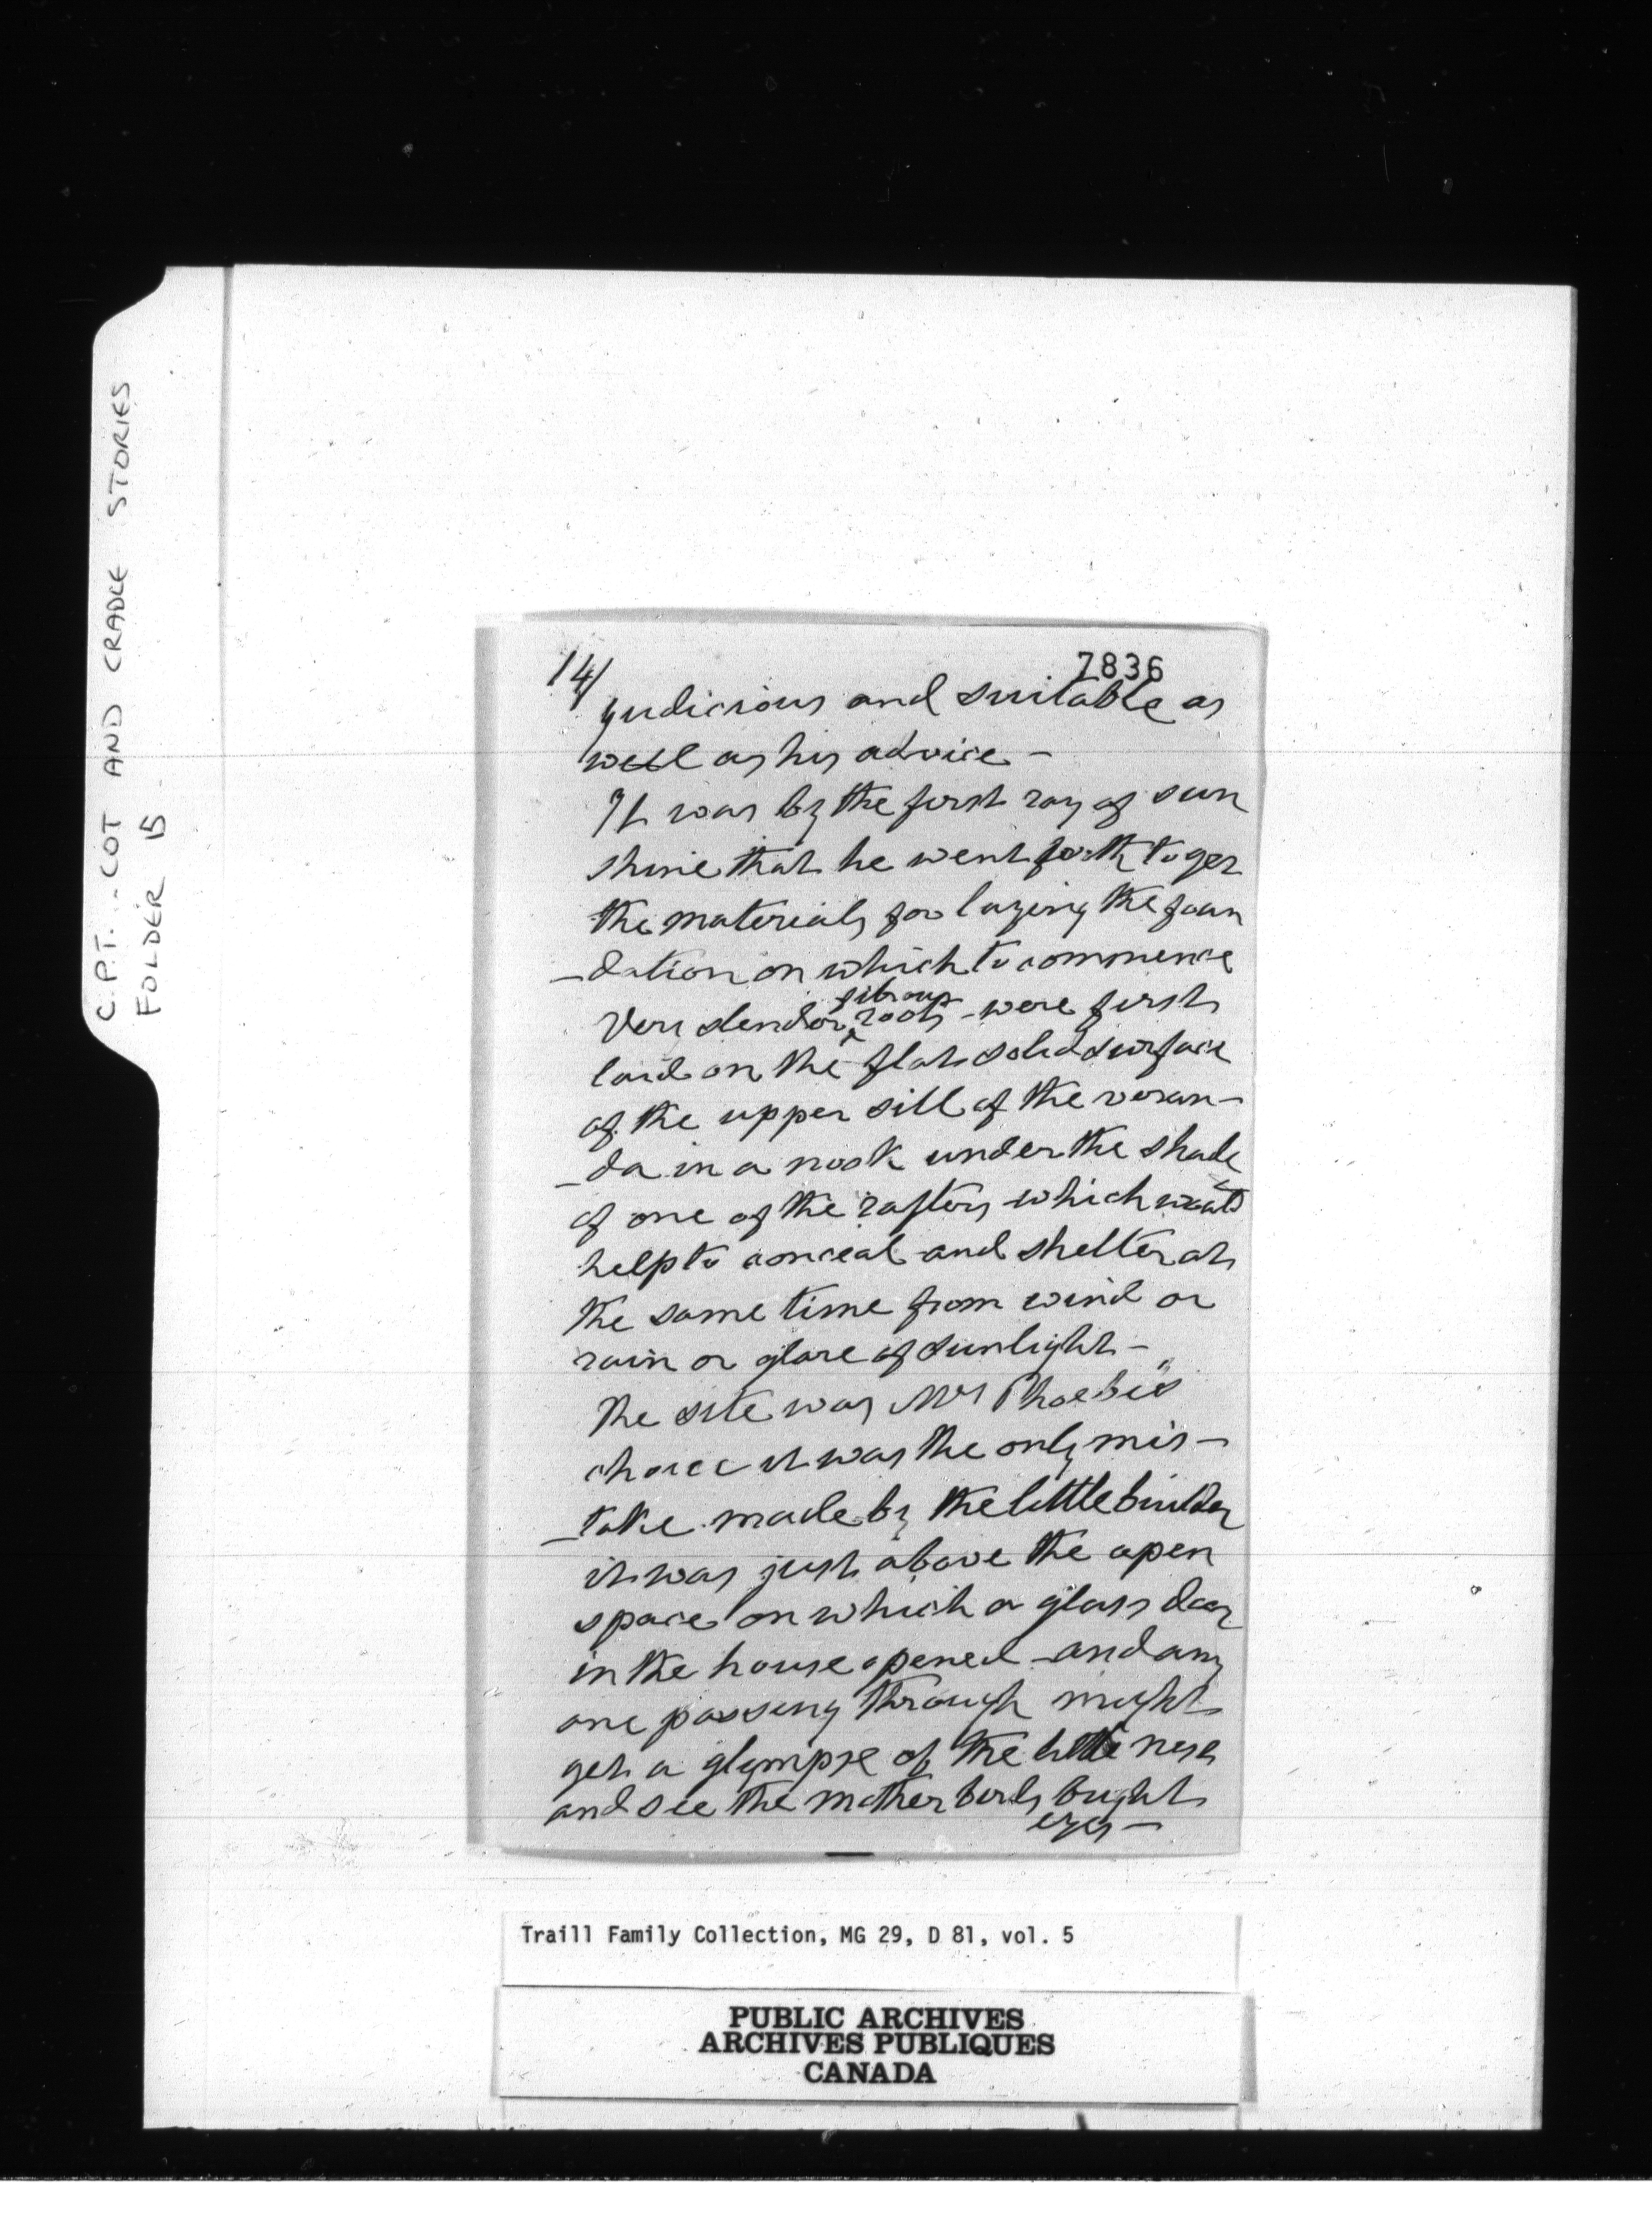 C.P.T. - COT AND CRADLE STORIES
FOLDER 15
14/
7836
judicious and suitable as
well as his advice -
It was by the first ray of sun
shine that he went forth to get
the materials for laying the foun
-dation on which to commence
Very slender fibrous roots - were first
laid on the flat solid surface
of the upper sill of the veran-
-da in a nook under the shade
of one of the rafters which would
help to conceal and shelter at
the same time from wind or
rain or glare of sunlight -
The site was Mrs Phoebe's
choice it was the only mis-
-take made by the little builder
it was just above the open
space on which a glass door
in the house opened - and any
one passing through might
get a glympse of the little nest
and see the mother birds bright
eyes -
Traill Family Collection, MG 29, D 81, vol. 5
PUBLIC ARCHIVES
ARCHIVES PUBLIQUES
CANADA